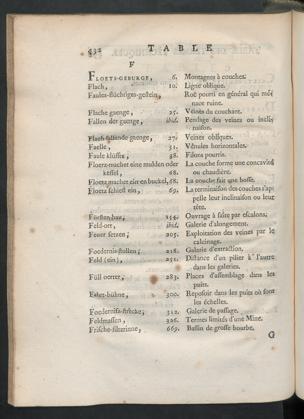 432 TABLE
F
FLOETS-GEBURGE, 6. Montagnes à couches.
Flach, 10. Ligne oblique.
Faules-fluchtiges-gestein, Roc pourri en général qui
nace ruine.
Flache gaenge, 25. Veines du couchant.
Fallen der gaenge, ibid. Pendage des veines ou incli-
naison.
Flach-fallende gaenge, 27. Veines obliques.
Faelle, 31. horizontales.
Faule kluffte, 38. Filons pourris.
Floetz machet eine mulden oder La couche forme une concavité
kessel, 68. ou chaudière.
Floetz machet eir en buckel, 68. La couche fait une bosse.
Floetz schiest ein, 69. La terminaison des couches s'ap-
pelle leur inclinaison ou leur
tête.
Fürsten-bau, 154. Ouvrage à faire par escalons.
Feld-ort, ibid. Galerie d'alongement.
Feuer setzen, 205. Exploitation des veines par le
calcinage.
Foerdernis-stollen, 218. Galerie d'extraction.
Feld (ein), 251. Distance d'un pilier à l'autre
dans les galeries.
Füll oerter, 283. Places d'assemblage dans les
puits.
Fahrt-bühne, 300. Reposoir dans les puits où sont
les échelles.
Foerderniss-strecke, 312. Galerie de passage.
Feldmassen, 326. Termes limités d'une Mine.
Frische 669. Bassin de grosse bourbe.
G